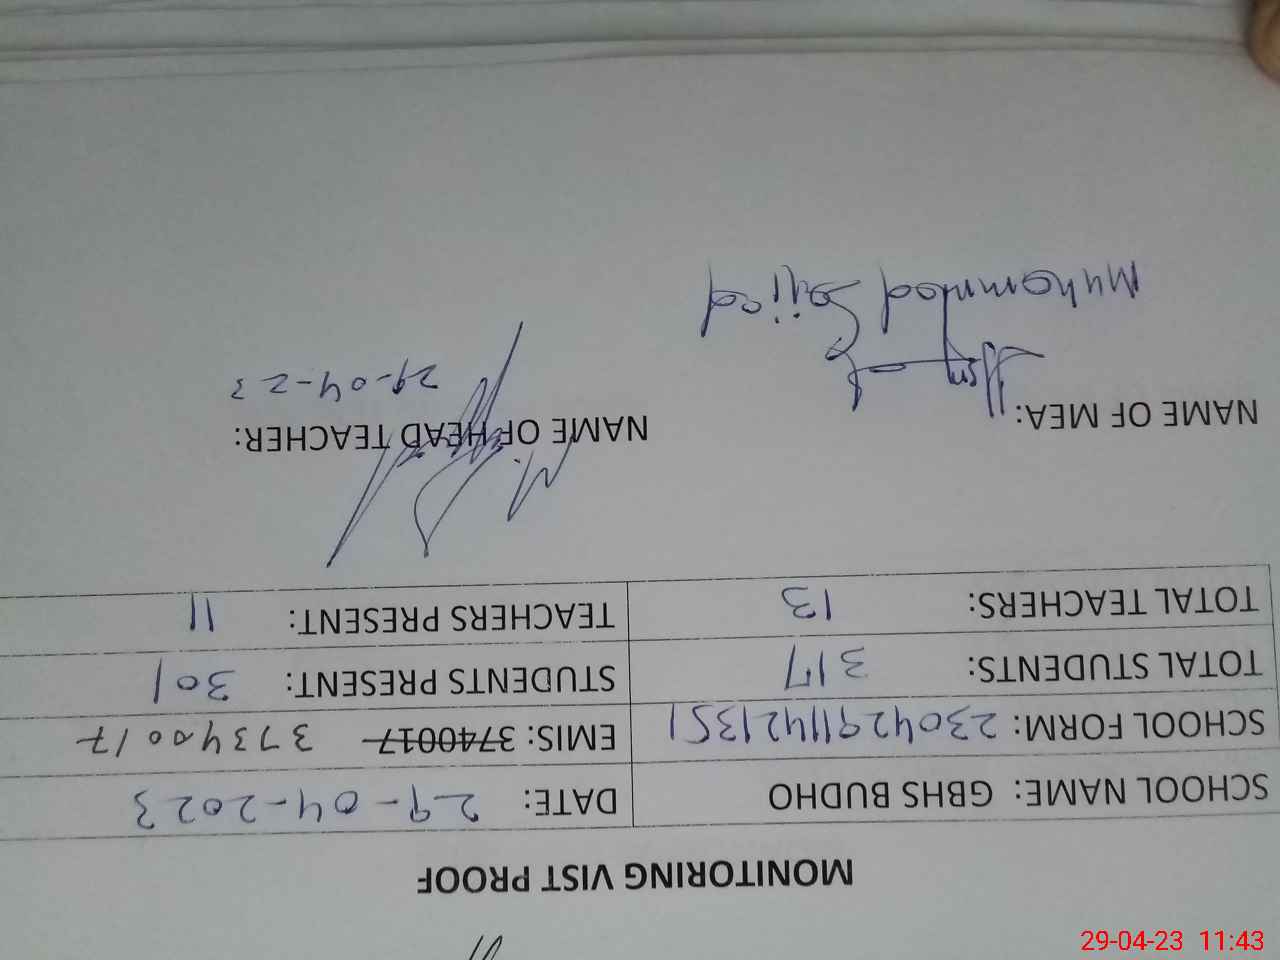 MONITORING VIST PROOF
SCHOOL NAME: GBHS BUDHO DATE: 29-04-2023
SCHOOL FORM: 23042911421351 EMIS: 3740017 37340017
TOTAL STUDENTS: 317 STUDENTS PRESENT: 301
TOTAL TEACHERS: 13 TEACHERS PRESENT: 11
NAME OF MEA: NAME OF HEAD TEACHER:
29-04-23
Muhammad Sajjad
29-04-23 11:43